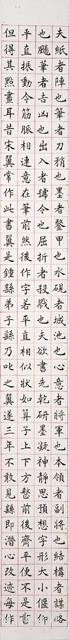 夫紙者陣也筆者刀矟也墨者鍪甲也水硯者城池也心意者將軍也本領者副將也結構者謀略
也颺筆者吉凶也出入者號令也屈折者殺戮也夫欲書者先乾研墨凝神靜思預想字形大小偃仰
平直振動令筋脈相連意在筆前然後作字若平直相似狀如算子上下方整前後齊平便不是書
但得其點畫耳昔宋翼常作此書翼是鍾繇弟子繇乃叱之翼遂三年不敢見繇即潛心改迹每作